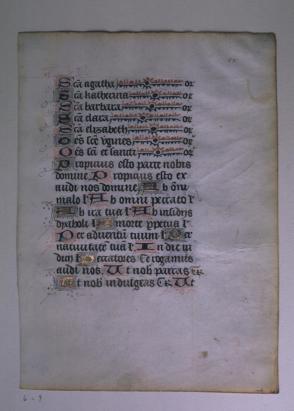 Sca agatha or
Sca katherina or
Sca barbara or
Sca clara or
Sca elizabeth or
Oes sce vgines or
Oes sci et sancti or
Propicius esto parce nobis
domine Propicius esto ex
audi nos domine Ab omi
malo l' Ab omni peccato l'
Ab ira tua l' Ab insidijs
dyaboli l' A morte ppetua l'
Per aduentu tuum l' Per
natiuitate tua l' In die iu
dicij l' Peccatores Te rogamus
audi nos. Ut nob parcas te r
Ut nob indulgeas te r Ut
6 - 9